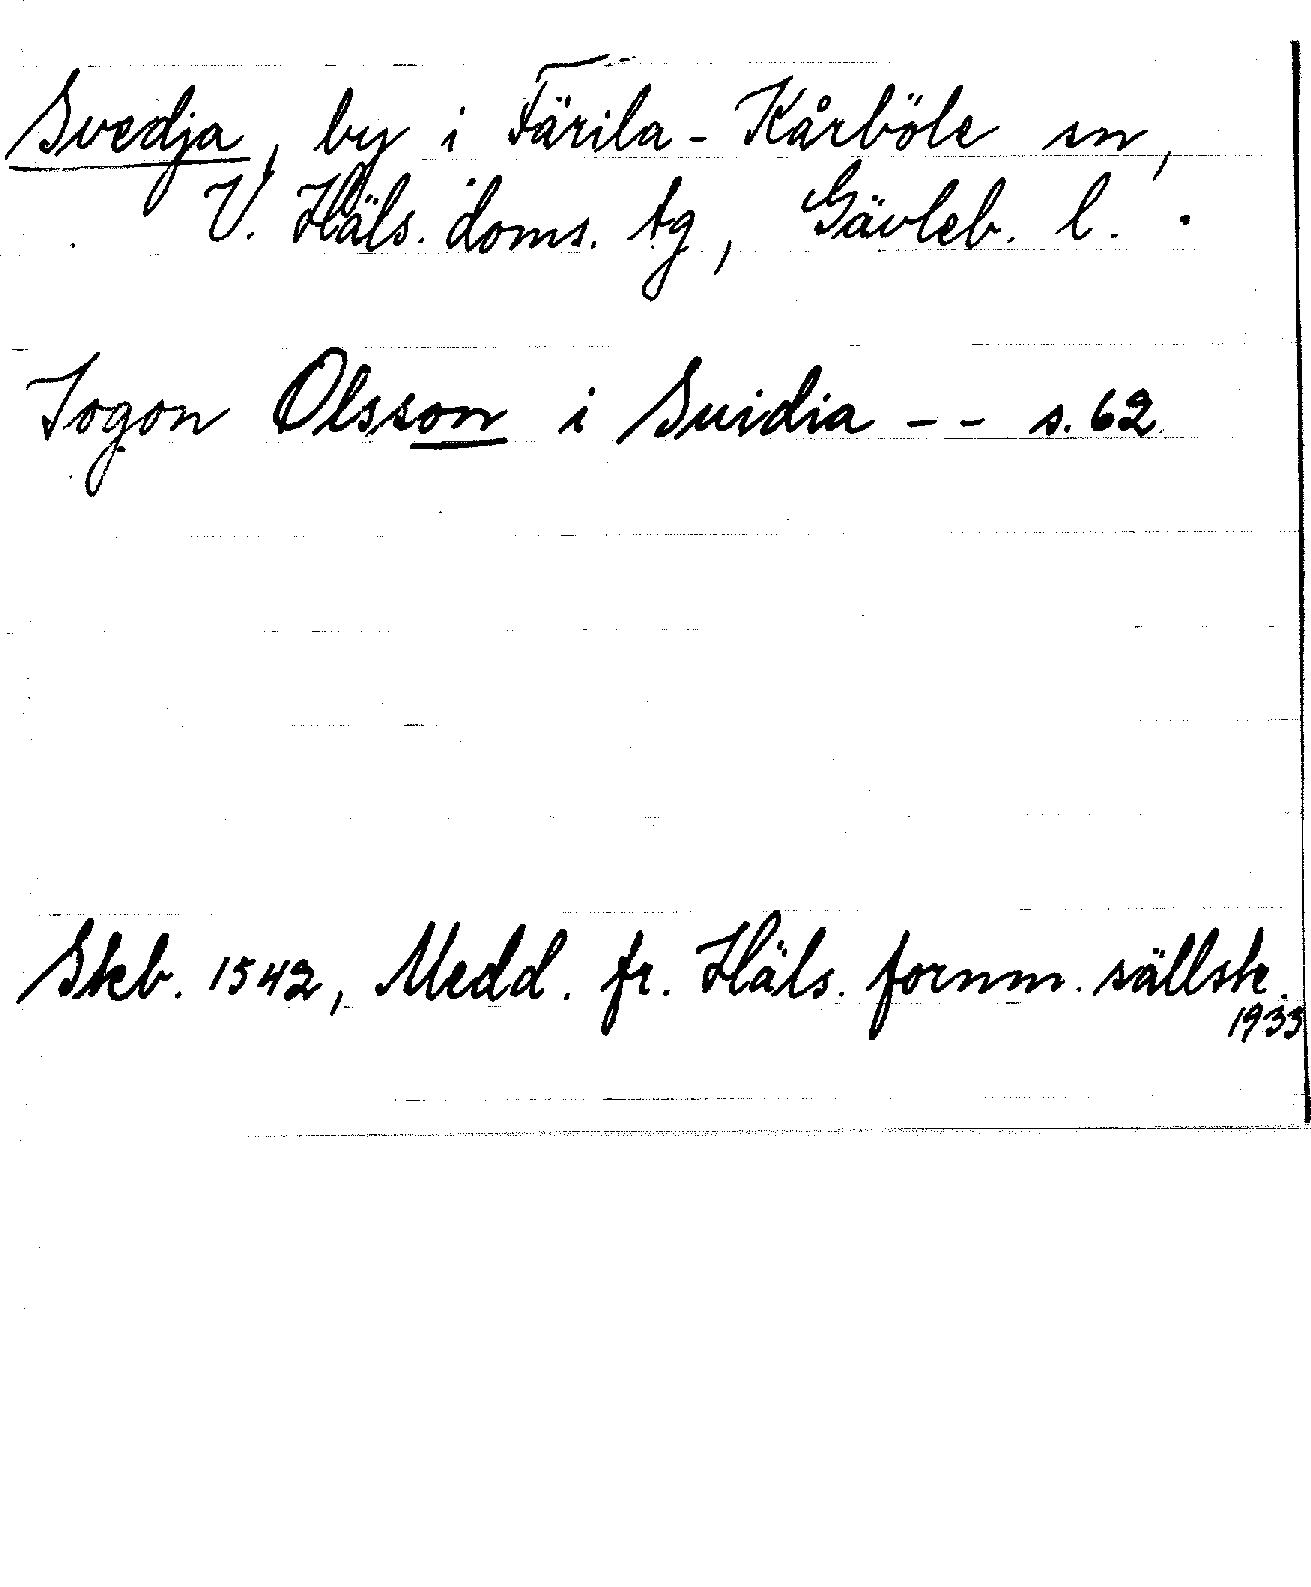 Svedja, by i Färila-Kårböle sn,
V. Häls. doms. tg, Gävleb. l.
Jogon Olsson i Suidia -- s. 62
Skb. 1542, Medd. fr. Häls. fornm. sällsk.
1933